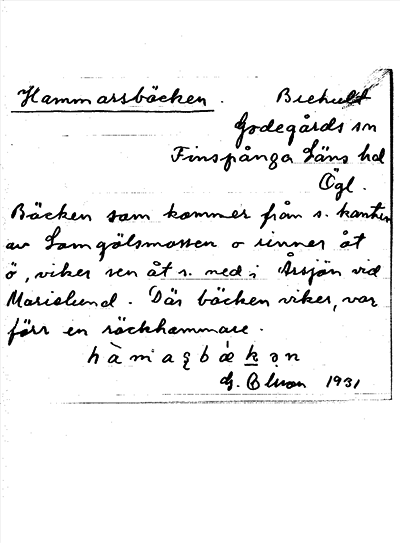 Hammarsbäcken. Biehult
Godegårds sn
Finspånga Läns hd
Ögl.
Bäcken som kommer från s. kanten
av Lomgölsmossen o rinner åt
ö, viker sen åt s. ned i Årsjön vid
Marielund. Där bäcken viker, var
förr en räckhammare.
hàmaʂbǽkən
G. Olson 1931